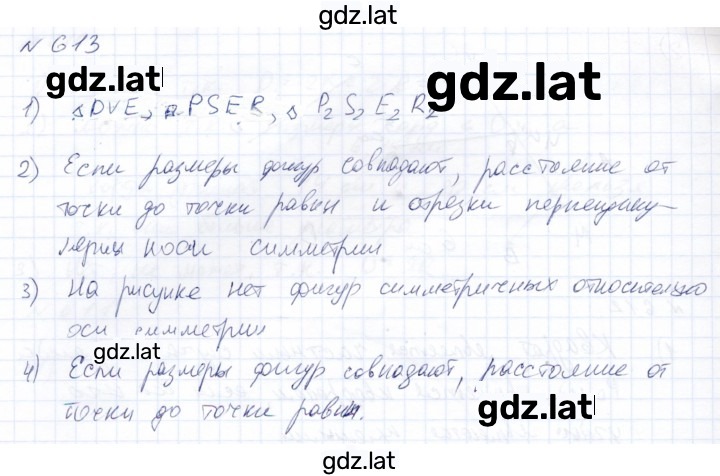 gdz.lat
N 613
gdz.lat
gdz.lat
1) △DVE, □PSER, △ P₂S₂E₂R₂
2) Если размеры фигур совпадают, расстояние от
точки до точки равны и отрезки перпендику-
лярны к оси симметрии
3) На рисунке нет фигур симметричных относительно
оси симметрии
gdz.lat
4) Если размеры фигур совпадают, расстояние от
точки до точки равны.
gdz.lat
gdz.lat